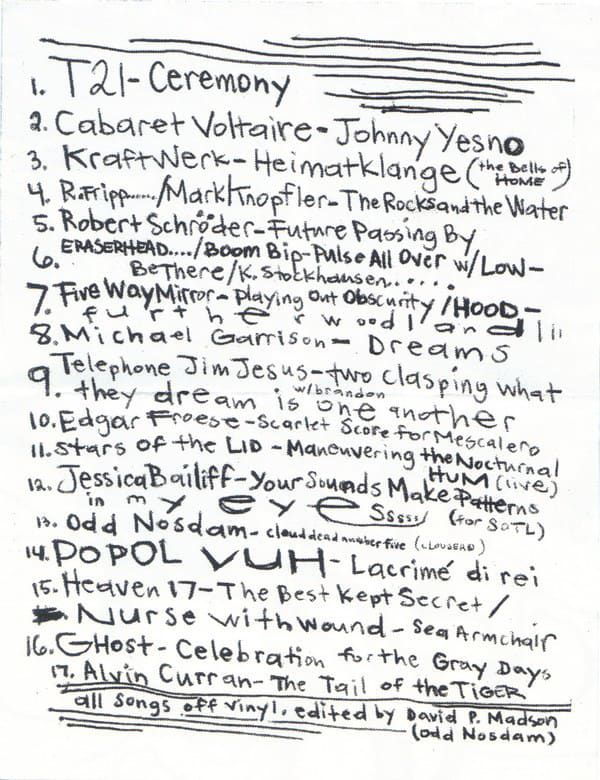 1. T21- Ceremony
2. Cabaret Voltaire- Johnny Yesno
3. Kraftwerk- Heimatklange (the Bells of HOME)
4. R. Fripp....../Mark Knopfler-The Rocks and the Water
5. Robert Schröder-Future Passing By
6. ERASERHEAD..../Boom Bip-Pulse All Over w/Low-
Be There/K. Stockhausen......
7. Five Way Mirror- Playing Out Obscurity/HOOD-
further woodland III
8. Michael Garrison- Dreams
9. Telephone Jim Jesus-two clasping what
they dream is one another
w/brandon
10. Edgar Froese-Scarlet Score for Mescalero
11. Stars of the LID -Maneuvering the Nocturnal
HUM (live)
12. Jessica Bailiff-Your Sounds Make Patterns
in my eyesssss/ (for SOTL)
13. Odd Nosdam- clouddead number five (cLOUDEAD)
14. POPOL VUH- Lacrimé di rei
15. Heaven 17-The Best Kept Secret/
Nurse with Wound- Sea Armchair
16. GHost- Celebration for the Gray Days
17. Alvin Curran-The Tail of the TIGER
all songs off vinyl. edited by David P. Madson
(odd Nosdam)